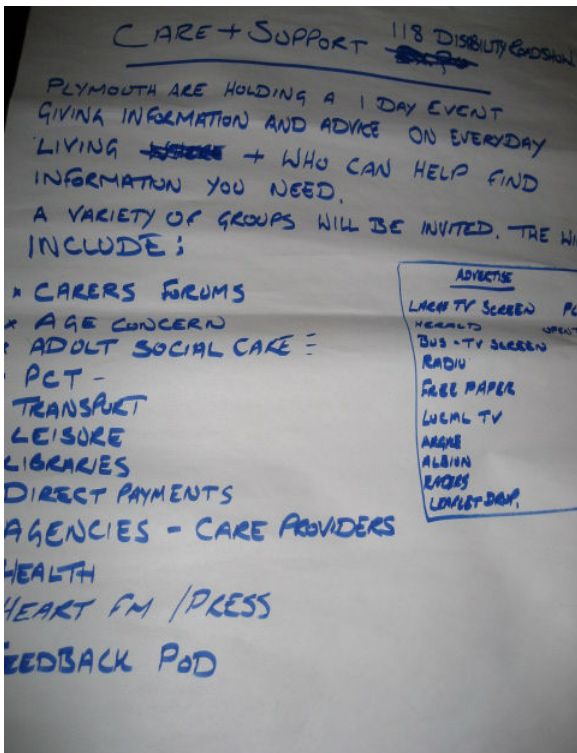 CARE + SUPPORT 118 DISABILITY ROADSHOW
PLYMOUTH ARE HOLDING A 1 DAY EVENT
GIVING INFORMATION AND ADVICE ON EVERYDAY
LIVING + WHO CAN HELP FIND
INFORMATION YOU NEED.
A VARIETY OF GROUPS WILL BE INVITED. THE WI
INCLUDE:
* CARERS FORUMS
* AGE CONCERN
* ADULT SOCIAL CARE
PCT -
TRANSPORT
LEISURE
LIBRARIES
DIRECT PAYMENTS
AGENCIES - CARE PROVIDERS
HEALTH
HEART FM / PRESS
FEEDBACK POD
ADVERTISE
LARGE TV SCREEN
HERALD
BUS - TV SCREEN
RADIO
FREE PAPER
LOCAL TV
ARGYLE
ALBION
RAIDERS
LEAFLET DROP.